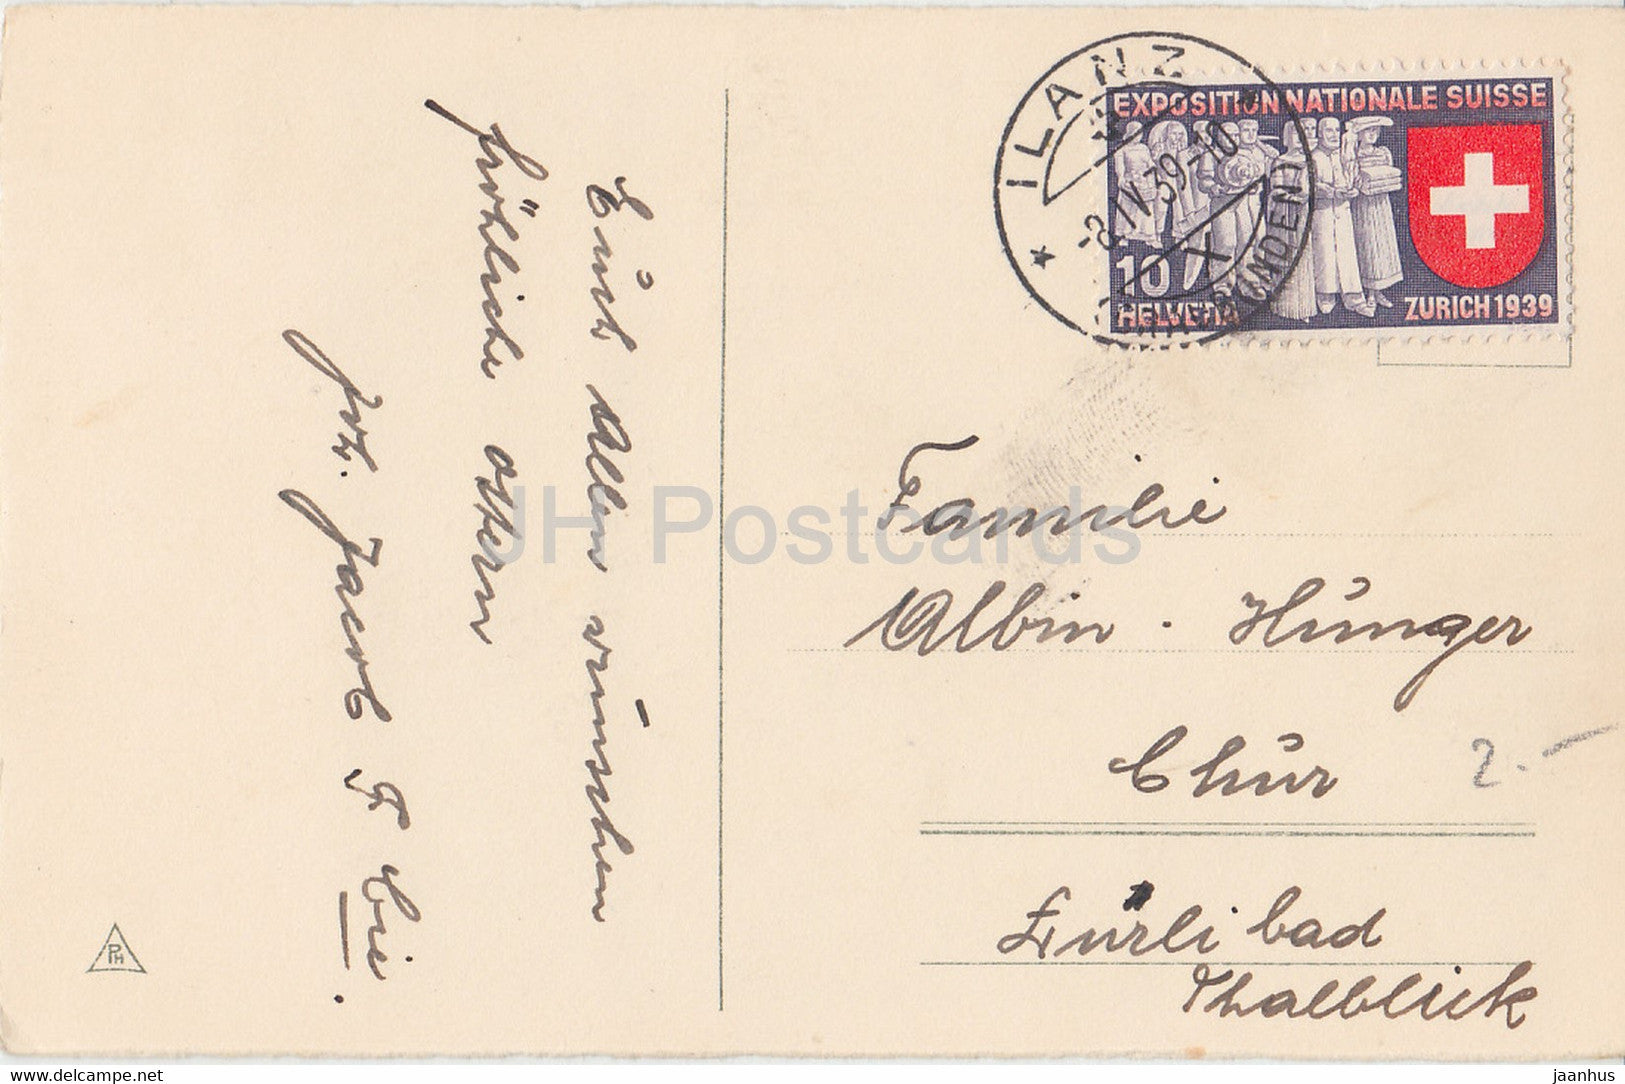 Euch Allen wünschen
fröhliche Ostern
Jacob &
ILANZ
-8.IV.39-10
EXPOSITION NATIONALE SUISSE
10
HELVETIA
ZURICH 1939
Familie
Albin . Hunger
Chur
2.-
Thalblick
PH
JH Postcards
www.delcampe.net
jaanhus